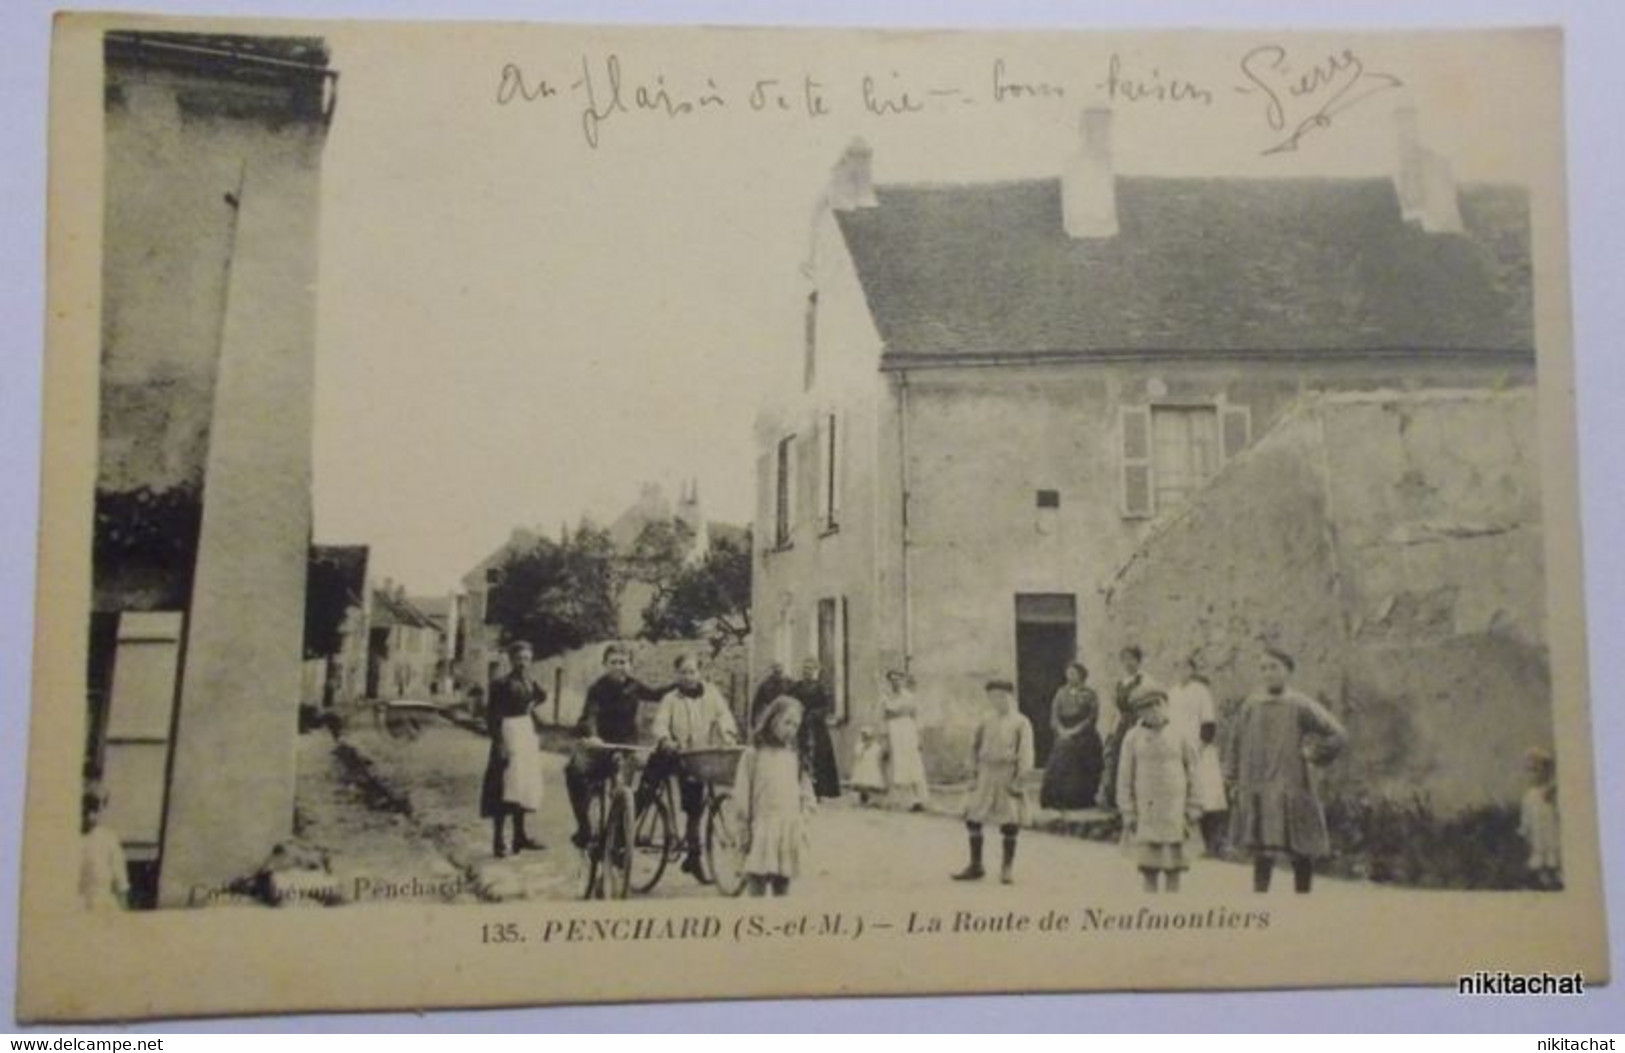 Au plaisir de te lire — bons baisers Pierre
Coll. Guéron, Penchard
135. PENCHARD (S.-et-M.) — La Route de Neufmontiers
nikitachat
www.delcampe.net
nikitachat